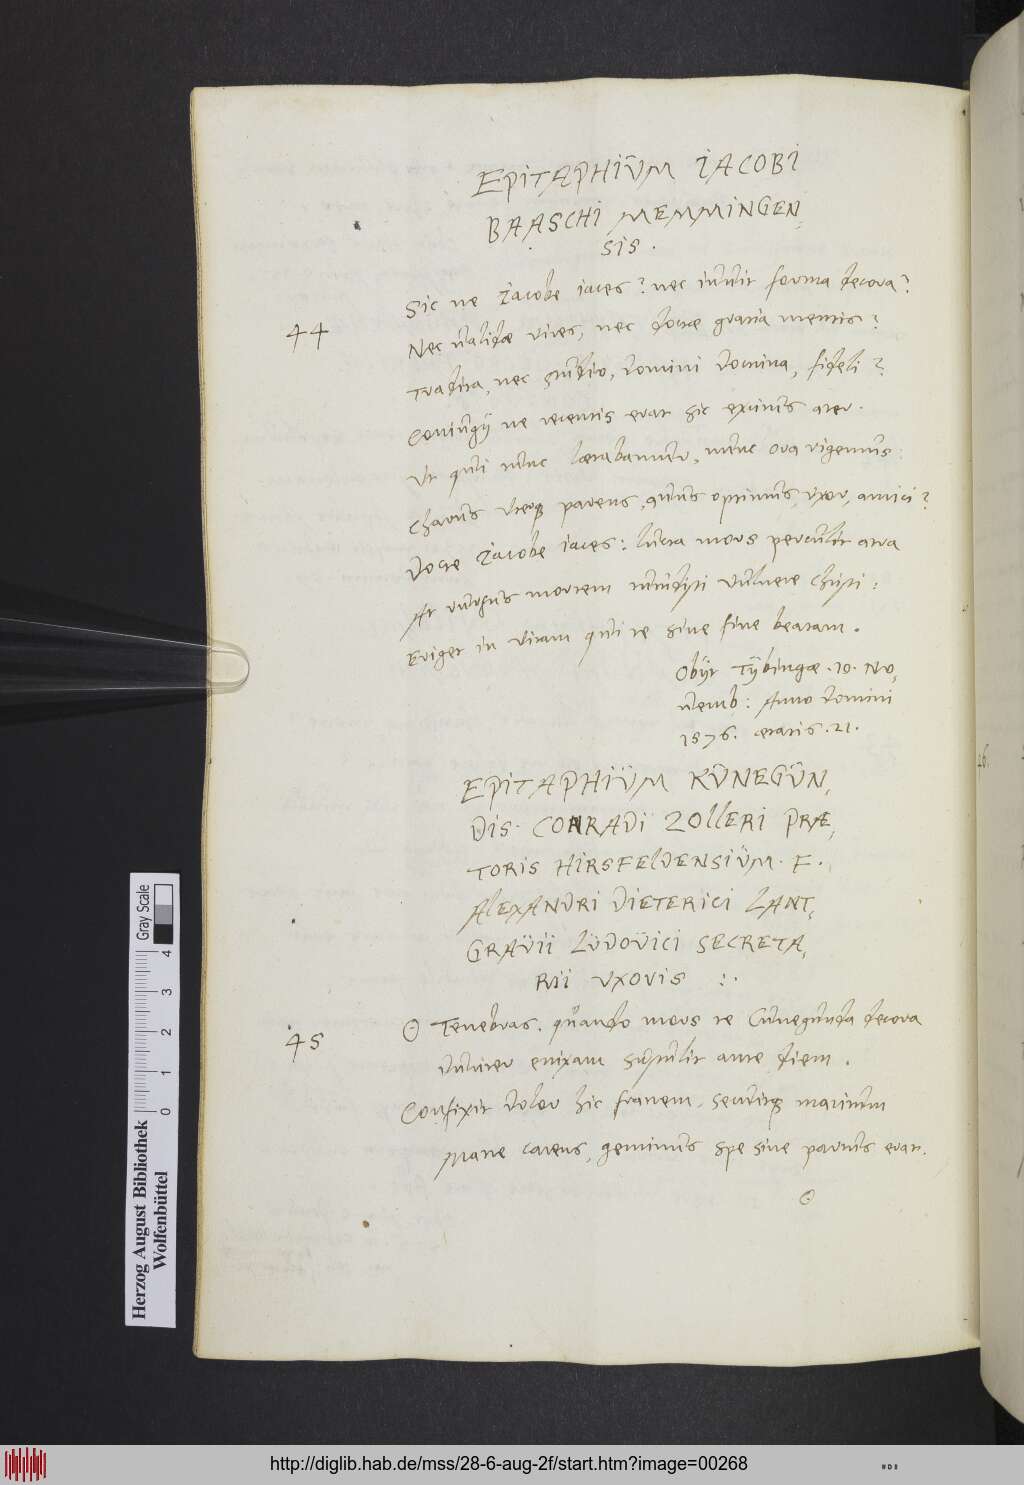 EPITAPHIUM IACOBI
BAASCHI MEMMINGEN,
SIS.
44
Sic ne Iacobe iaces? nec iuuit forma decora?
Nec ualidæ vires, nec doctæ gratia mentis?
Tradita, nec studio, domini doctrina, fideli?
Coniugij ne recentis erat sic eximus ater.
Vt qui nunc lætabamur, nunc ora rigemus:
Charus vterq parens, auus optimus, vxor, amici?
Docte Iacobe iaces: lucta mors perculit atra
At rursus mortem uulnere Christi:
Eriget in vitam qui te sine fine beatam.
Obijt Tybingæ. 10. No,
uemb: Anno Domini
1576. ætatis. 21.
EPITAPHIUM KUNEGUN,
DIS. CONRADI ZOLLERI PRÆ,
TORIS HIRSFELDENSIUM. F.
ALEXANDRI DIETERICI LANT,
GRAUII LUDOUICI SECRETA,
RII UXORIS :.
45
O Tenebras. quando mors te Cunegunda decora
enixam sustulit ante diem.
Confixit dolor hic fratrem, seuitq maritum
Matre carens, geminus spe sine paruus erat.
Herzog August Bibliothek
Wolfenbüttel
Gray Scale
0 1 2 3 4
http://diglib.hab.de/mss/28-6-aug-2f/start.htm?image=00268